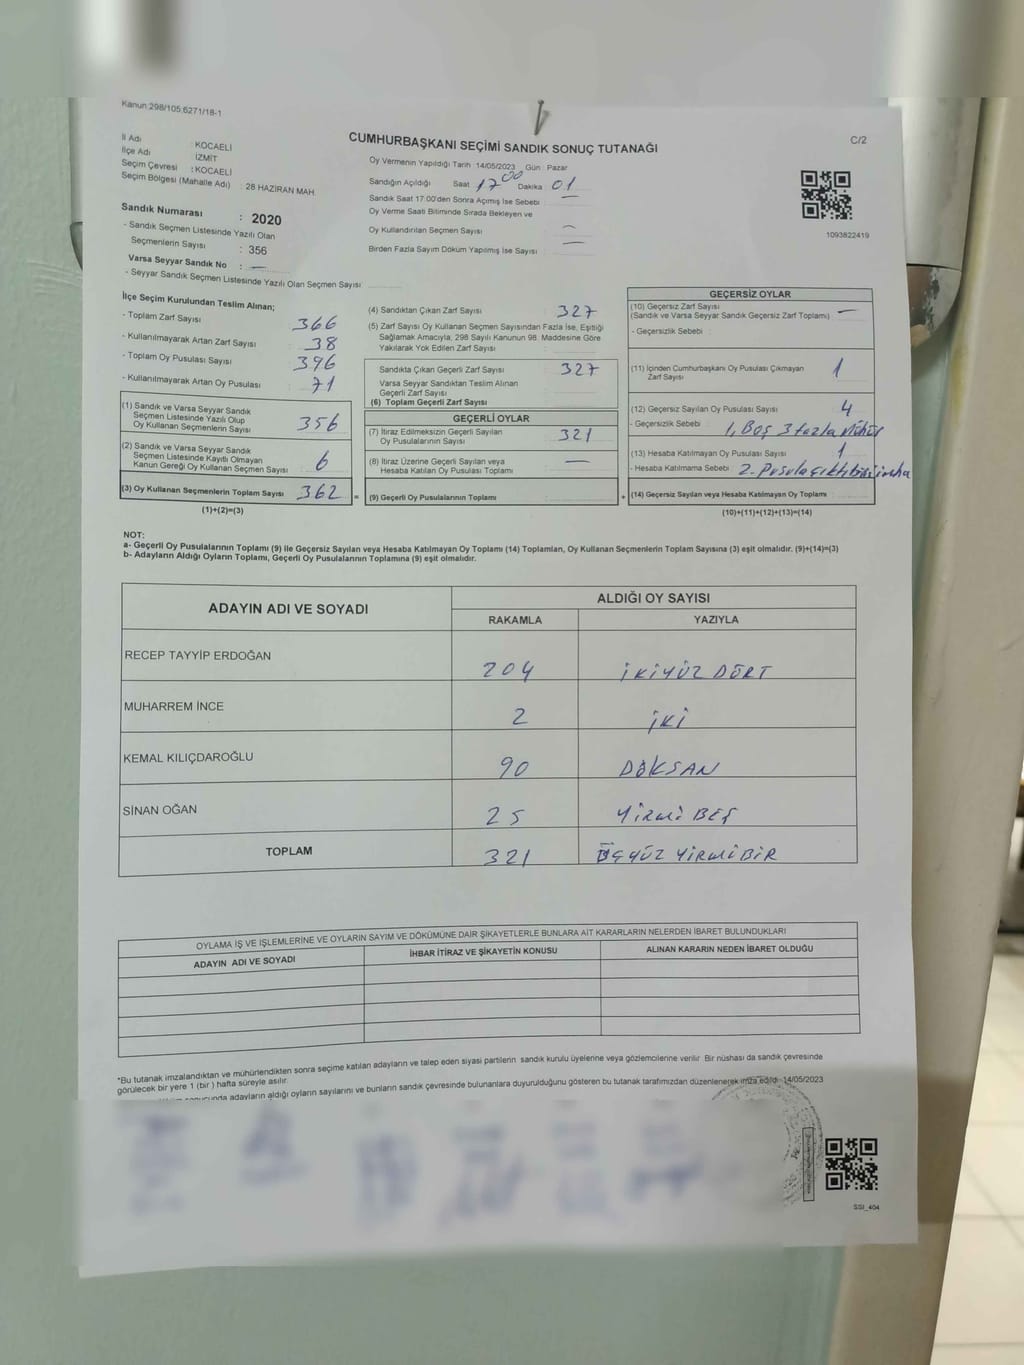 Kanun 298/105,6271/18-1
C/2
CUMHURBAŞKANI SEÇİMİ SANDIK SONUÇ TUTANAĞI
İl Adı : KOCAELİ
İlçe Adı : İZMİT
Seçim Çevresi : KOCAELİ
Seçim Bölgesi (Mahalle Adı) : 28 HAZİRAN MAH
Sandık Numarası : 2020
- Sandık Seçmen Listesinde Yazılı Olan
Seçmenlerin Sayısı : 356
Varsa Seyyar Sandık No : —
- Seyyar Sandık Seçmen Listesinde Yazılı Olan Seçmen Sayısı
Oy Vermenin Yapıldığı Tarih 14/05/2023 Gün : Pazar
Sandığın Açıldığı Saat 17 00 Dakika 01
Sandık Saat 17:00'den Sonra Açmış İse Sebebi —
Oy Verme Saati Bitiminde Sırada Bekleyen ve
Oy Kullandırılan Seçmen Sayısı —
Birden Fazla Sayım Döküm Yapılmış İse Sayısı —
1093822419
İlçe Seçim Kurulundan Teslim Alınan;
- Toplam Zarf Sayısı 366
- Kullanılmayarak Artan Zarf Sayısı 38
- Toplam Oy Pusulası Sayısı 396
- Kullanılmayarak Artan Oy Pusulası 71
(1) Sandık ve Varsa Seyyar Sandık
Seçmen Listesinde Yazılı Olup
Oy Kullanan Seçmenlerin Sayısı 356
(2) Sandık ve Varsa Seyyar Sandık
Seçmen Listesinde Kayıtlı Olmayan
Kanun Gereği Oy Kullanan Seçmen Sayısı 6
(3) Oy Kullanan Seçmenlerin Toplam Sayısı 362 =
(1)+(2)=(3)
(4) Sandıktan Çıkan Zarf Sayısı 327
(5) Zarf Sayısı Oy Kullanan Seçmen Sayısından Fazla İse, Eşitliği
Sağlamak Amacıyla, 298 Sayılı Kanunun 98. Maddesine Göre
Yakılarak Yok Edilen Zarf Sayısı
Sandıkta Çıkan Geçerli Zarf Sayısı 327
Varsa Seyyar Sandıktan Teslim Alınan
Geçerli Zarf Sayısı
(6) Toplam Geçerli Zarf Sayısı
GEÇERLİ OYLAR
(7) İtiraz Edilmeksizin Geçerli Sayılan
Oy Pusulalarının Sayısı 321
(8) İtiraz Üzerine Geçerli Sayılan veya
Hesaba Katılan Oy Pusulası Toplamı —
(9) Geçerli Oy Pusulalarının Toplamı +
GEÇERSİZ OYLAR
(10) Geçersiz Zarf Sayısı
(Sandık ve Varsa Seyyar Sandık Geçersiz Zarf Toplamı) —
- Geçersizlik Sebebi :
(11) İçinden Cumhurbaşkanı Oy Pusulası Çıkmayan
Zarf Sayısı 1
(12) Geçersiz Sayılan Oy Pusulası Sayısı 4
- Geçersizlik Sebebi : 1, Boş 3 fazla Mühür
(13) Hesaba Katılmayan Oy Pusulası Sayısı : 1
- Hesaba Katılmama Sebebi 2. Pusula çıktı birisi imha
(14) Geçersiz Sayılan veya Hesaba Katılmayan Oy Toplamı
(10)+(11)+(12)+(13)=(14)
NOT:
a- Geçerli Oy Pusulalarının Toplamı (9) ile Geçersiz Sayılan veya Hesaba Katılmayan Oy Toplamı (14) Toplamları, Oy Kullanan Seçmenlerin Toplam Sayısına (3) eşit olmalıdır. (9)+(14)=(3)
b- Adayların Aldığı Oyların Toplamı, Geçerli Oy Pusulalarının Toplamına (9) eşit olmalıdır.
ADAYIN ADI VE SOYADI ALDIĞI OY SAYISI
RAKAMLA YAZIYLA
RECEP TAYYİP ERDOĞAN 204 İKİYÜZ DÖRT
MUHARREM İNCE 2 İKİ
KEMAL KILIÇDAROĞLU 90 DOKSAN
SİNAN OĞAN 25 YİRMİ BEŞ
TOPLAM 321 ÜÇYÜZ YİRMİBİR
OYLAMA İŞ VE İŞLEMLERİNE VE OYLARIN SAYIM VE DÖKÜMÜNE DAİR ŞİKAYETLERLE BUNLARA AİT KARARLARIN NELERDEN İBARET BULUNDUKLARI
ADAYIN ADI VE SOYADI İHBAR İTİRAZ VE ŞİKAYETİN KONUSU ALINAN KARARIN NEDEN İBARET OLDUĞU
*Bu tutanak imzalandıktan ve mühürlendikten sonra seçime katılan adayların ve talep eden siyasi partilerin sandık kurulu üyelerine veya gözlemcilerine verilir Bir nüshası da sandık çevresinde
görülecek bir yere 1 (bir) hafta süreyle asılır.
adayların aldığı oyların sayılarını ve bunların sandık çevresinde bulunanlara duyurulduğunu gösteren bu tutanak tarafımızdan düzenlenerek imza edildi 14/05/2023
SSI_404